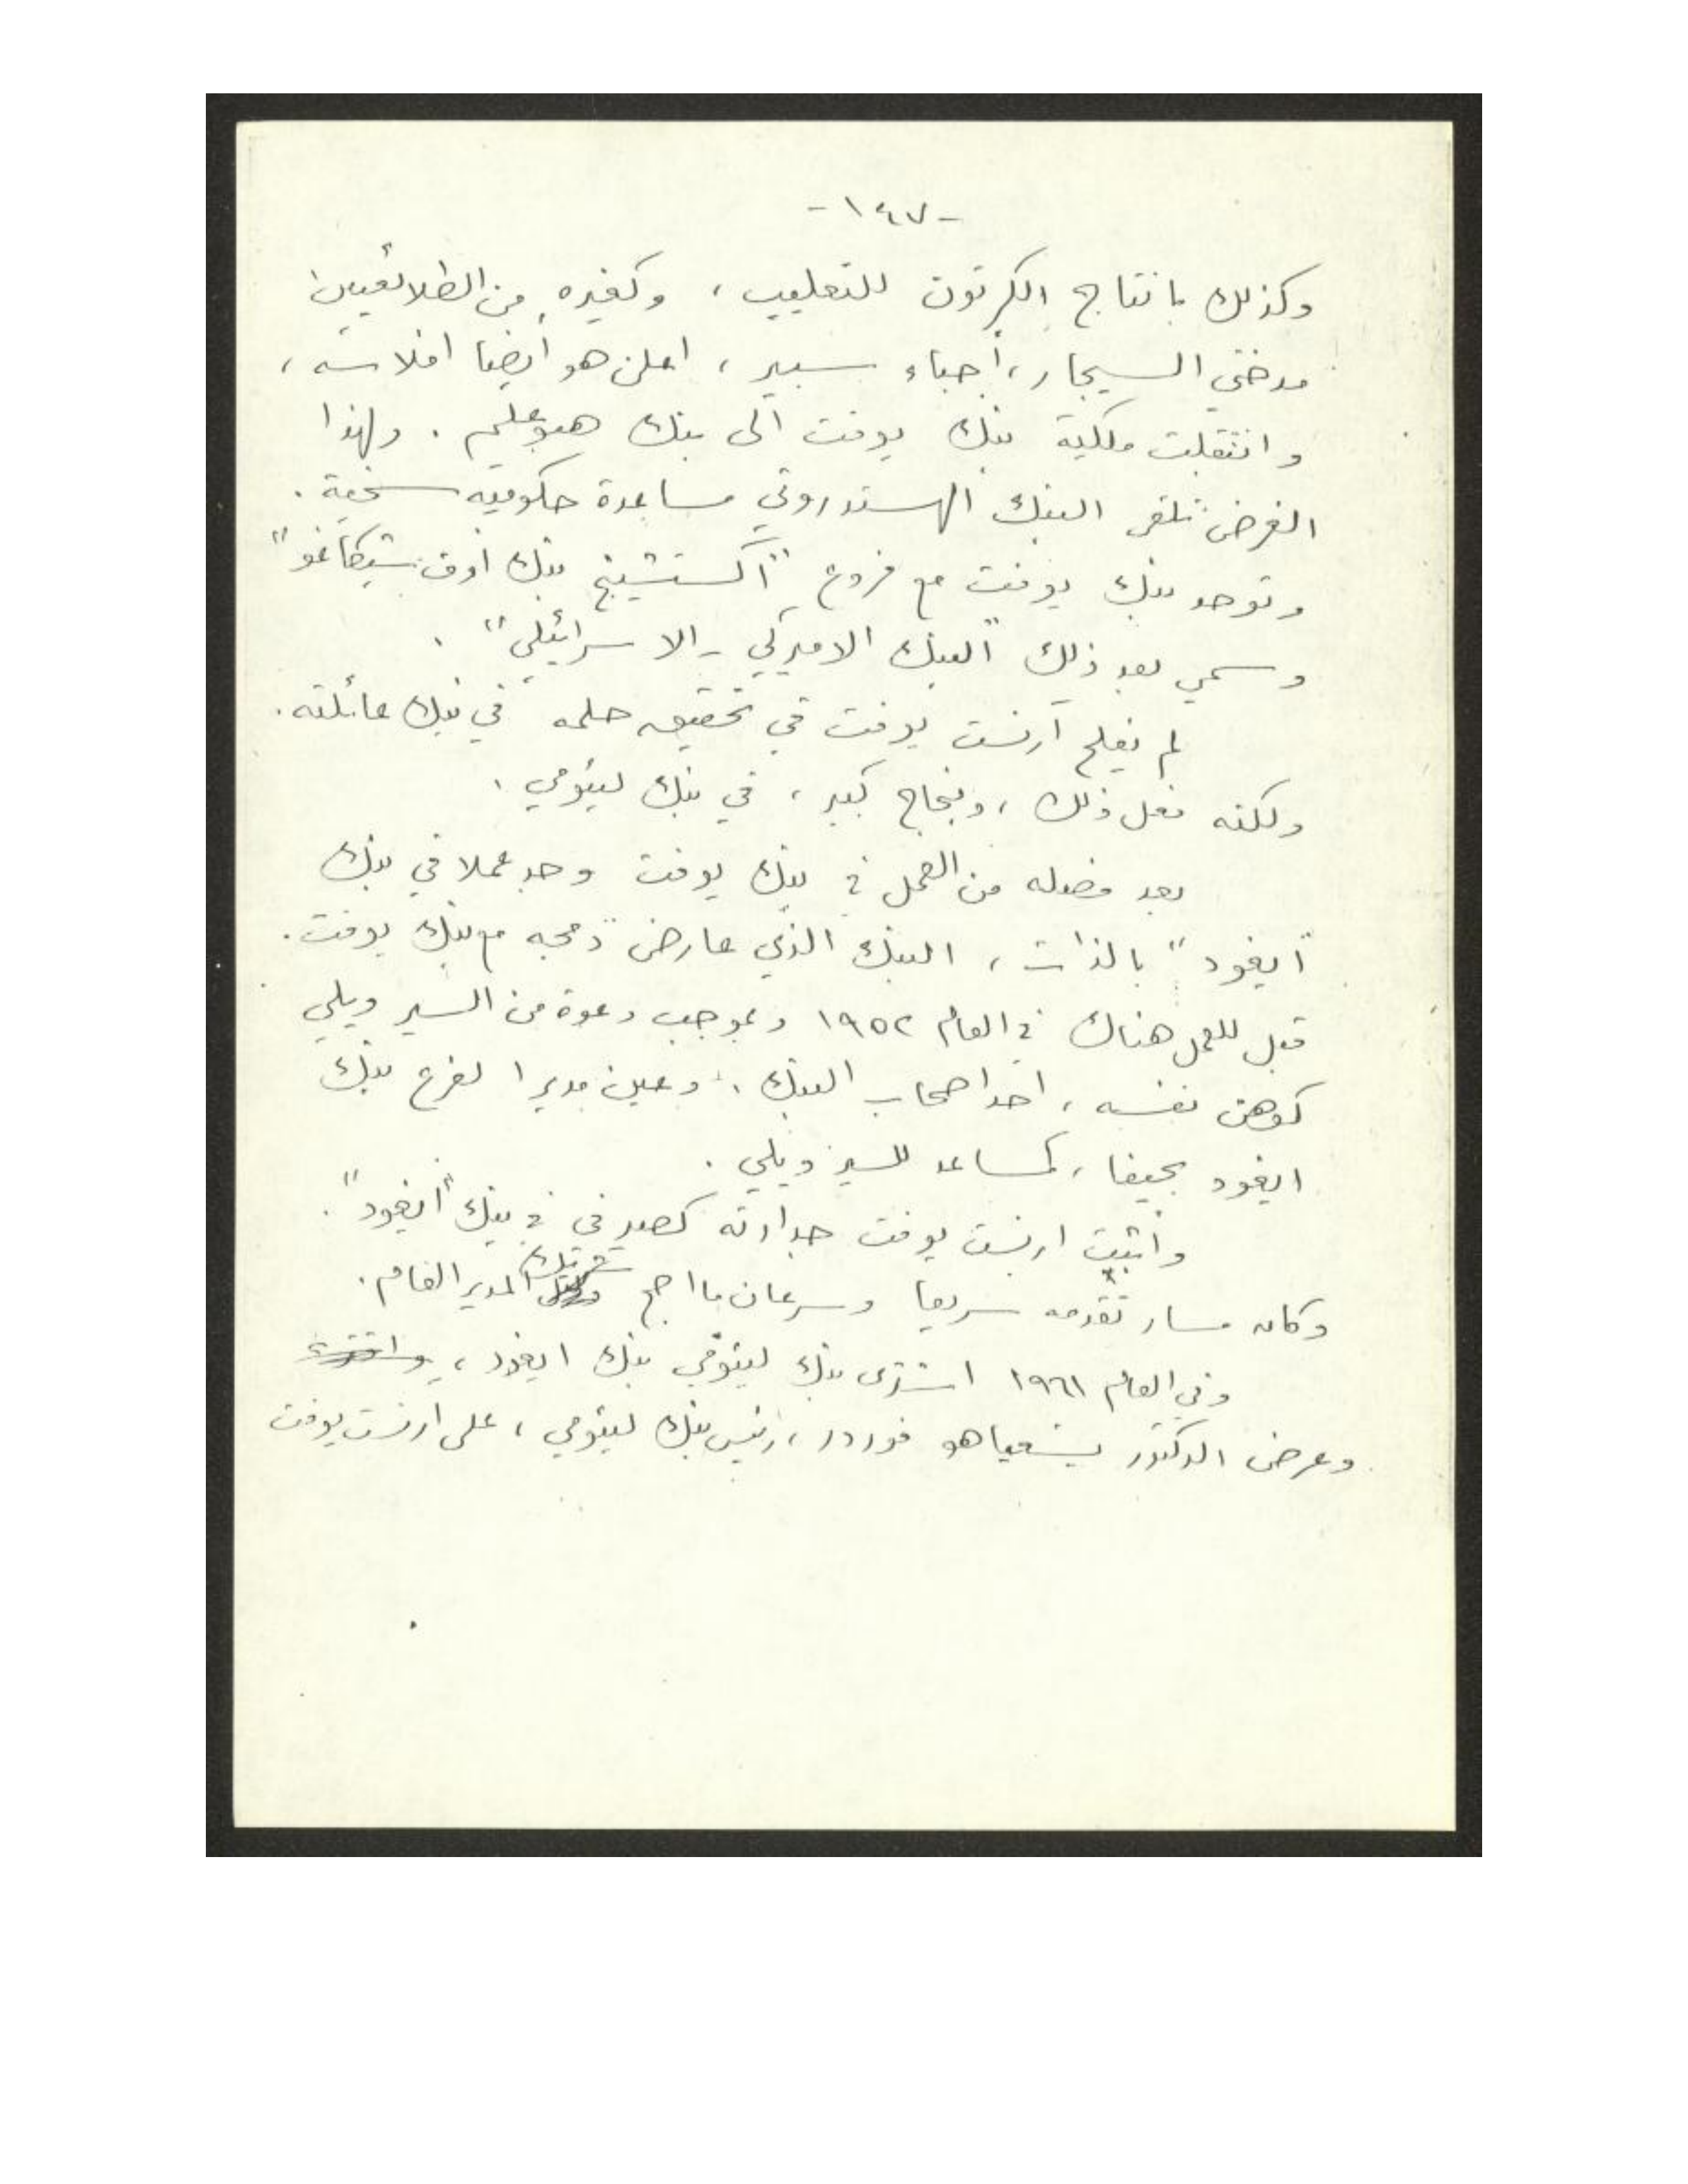 -١٤٧-
وكذلك بانتاج الكرتون للتعليب ، وكغيره من الطلائعيين
مدخني السيجار ، أحباء سبير ، اعلن هو أيضا افلاسه ،
وانتقلت ملكية بنك يوفت الى بنك هبوعليم . ولهذا
الغرض تلقى البنك الهستدروتي مساعدة حكوميه سخية .
وتوحد بنك يوفت مع فروع "اكستشينج بنك اوف شيكاغو"
وسمي بعد ذلك "البنك الاميركي - الاسرائيلي" .
لم يفلح ارنست يوفت في تحقيق حلمه في بنك عائلته .
ولكنه فعل ذلك ، وبنجاح كبير ، في بنك ليئومي .
بعد فصله من العمل في بنك يوفت وجد عملا في بنك
"ايغود" بالذات ، البنك الذي عارض دمجه مع بنك يوفت .
قبل للعمل هناك في العام ١٩٥٢ وبموجب دعوة من السير ويلي
كوهن نفسه ، احد اصحاب البنك . وعين مديرا لفرع بنك
ايغود بحيفا ، كمساعد للسير ويلي .
وأثبت ارنست يوفت جدارته كصيرفي في بنك "ايغود" .
وكان مسار تقدمه سريعا وسرعان ما اصبح شريك المدير العام .
وفي العام ١٩٦١ اشترى بنك ليئومي بنك ايغود ،
وعرض الدكتور يشعياهو فوردر ، رئيس بنك ليئومي ، على ارنست يوفت